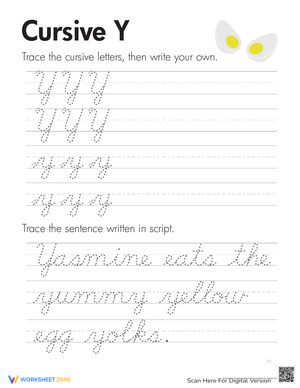 Cursive Y
Trace the cursive letters, then write your own.
Y Y Y
Y Y Y
y y y
y y y
Trace the sentence written in script.
Yasmine eats the
yummy yellow
egg yolks.
WORKSHEETZONE
Scan Here For Digital Version